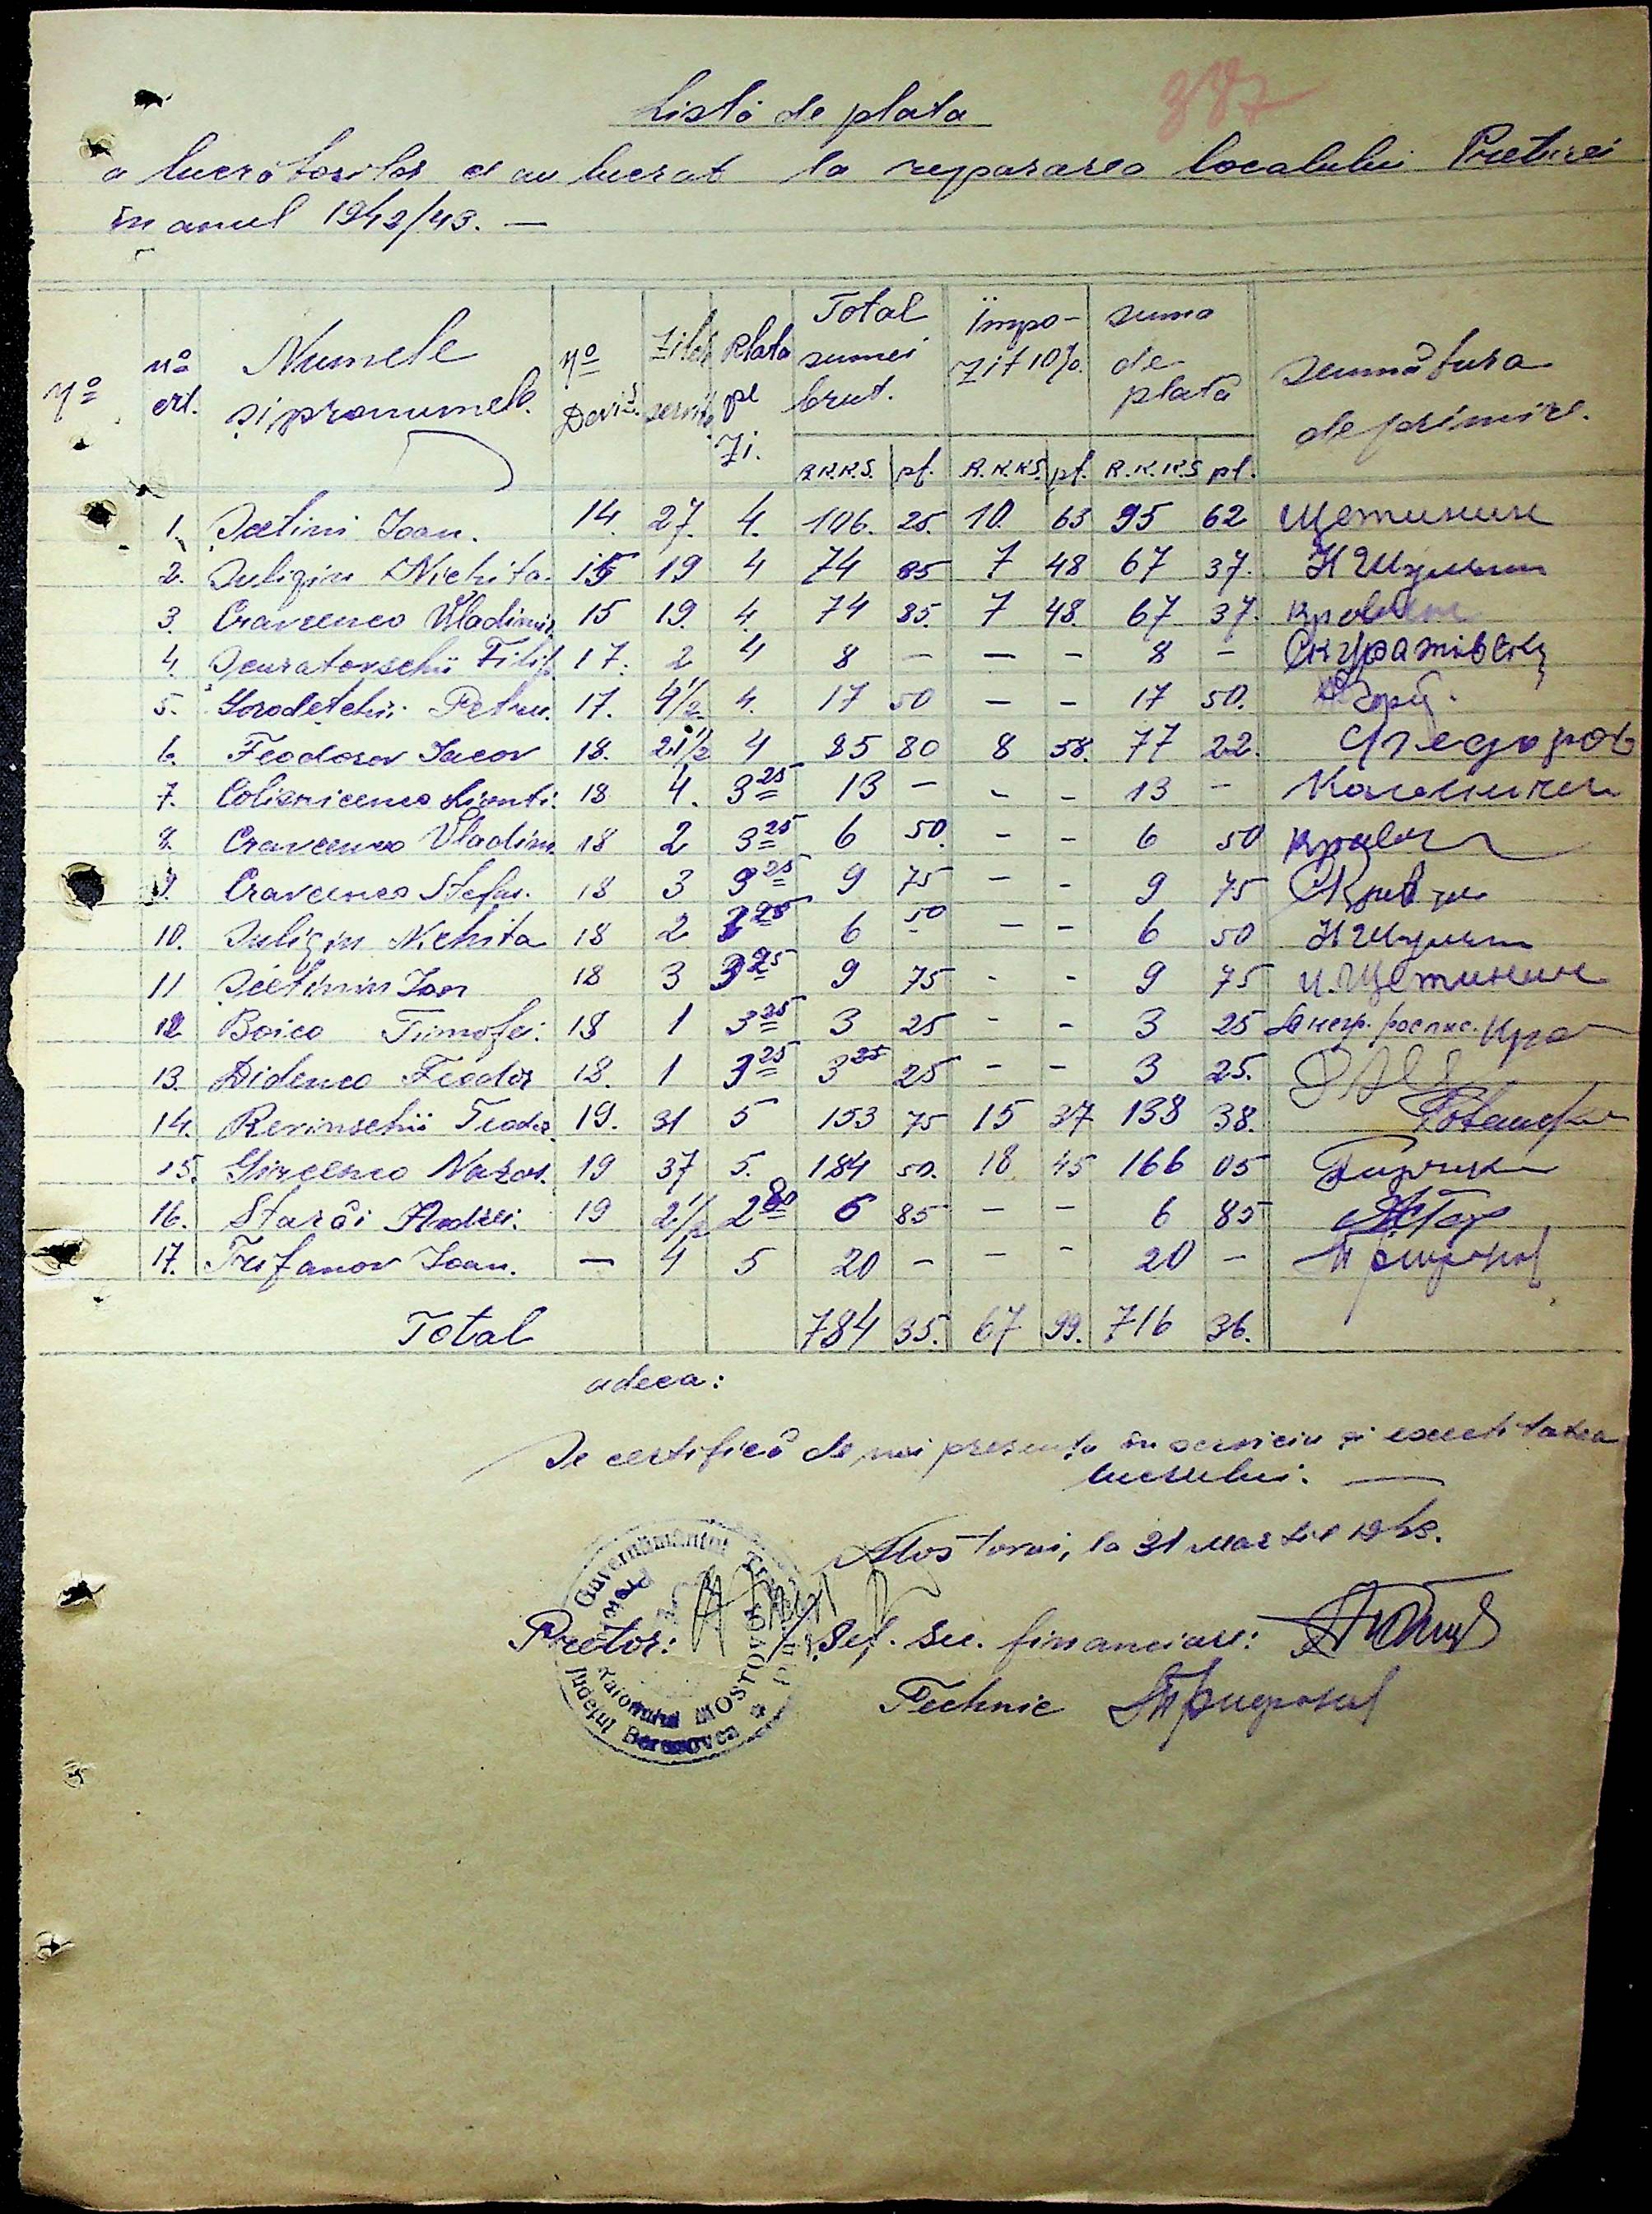 387
Listă de plata
a lucrătorilor ce au lucrat la repararea localului Preturei
în anul 1942/43. —
No no crt. Numele și pronumele No Deviz. Zile servite Plata pe zi. Total sumei brut. Impozit 10%. suma de plată semnătura de primire.
R.K.K.S. pf. R.K.K.S. pf. R.K.K.S pf.
1. Scetinin Ioan. 14. 27. 4. 106. 25. 10. 63 95 62 Щетинин
2. Suligin Nichita. 15 19 4 74 85 7 48 67 37. Н Шулыгин
3. Cravcenco Vladimir 15 19. 4. 74 85. 7 48. 67 37.
4. Scuratovschii Filip. 17. 2 4 8 — — — 8 — Скуратовский
5. Gorodețchii Petru. 17. 4 1/2 4. 17 50 — — 17 50.
6. Feodorov Iacov 18. 21 1/2 4 85 80 8 58. 77 22. Я Федоров
7. Colisnicenco Lionti. 18 4. 3 25 13 — — — 13 —
8. Cravcenco Vladim. 18 2 3 25 6 50. — — 6 50
9. Cravcenco Stefan. 18 3 3 25 9 75 — — 9 75
10. Suligin Nichita 18 2 3 25 6 50 — — 6 50 Н Шулыгин
11 Scetinin Ioan 18 3 3 25 9 75 — — 9 75 И. Щетинин
12 Boico Timofei. 18 1 3 25 3 25 — — 3 25
13. Didenco Feodor 18. 1 3 25 3 25 25 — — 3 25.
14. Revinschii Teodor. 19. 31 5 153 75 15 37 138 38.
15. Gircenco Nazar. 19 37 5. 184 50. 18 45 166 05
16. Starâi Andrei. 19 2 1/2 2 80 6 85 — — 6 85
17. Trifanov Ioan. — 4 5 20 — — — 20 —
Total 784 35. 67 99. 716 36.
adeca:
Se certifică de noi presența în serviciu și exactitatea
lucrului. —
Mostovoi, la 31 Martie 1943.
Pretor: Șef. sec. financiare:
Technic
Guvernământul Transnistriei
Județul Berezovca
Pretura Raionului MOSTOVOI